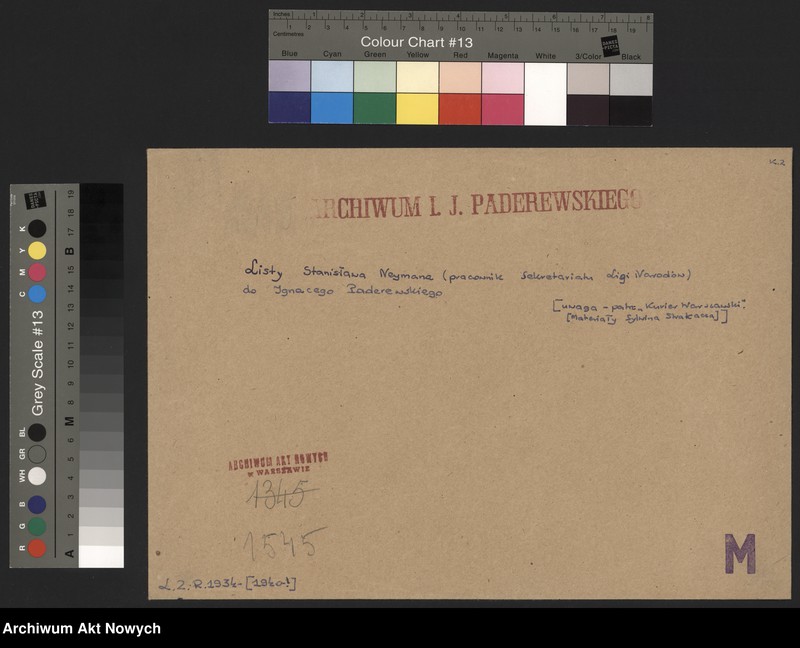 Inches 1 2 3 4 5 6 7 8
Centimetres 1 2 3 4 5 6 7 8 9 10 11 12 13 14 15 16 17 18 19
Colour Chart #13
Blue Cyan Green Yellow Red Magenta White 3/Color Black
ARCHIWUM I. J. PADEREWSKIEGO
Listy Stanisława Neymana (pracownik Sekretariatu Ligi Narodów)
do Ignacego Paderewskiego
[uwaga - patrz „Kurier Warszawski".
[Materiały Sylwina Strakacza]]
ARCHIWUM AKT NOWYCH
W WARSZAWIE
1345
1545
M
L.Z.R. 1934-[1940!]
Grey Scale #13
C M Y K
R G B WH GR BL
A 1 2 3 4 5 6 M 8 9 10 11 12 13 14 15 B 17 18 19
Archiwum Akt Nowych